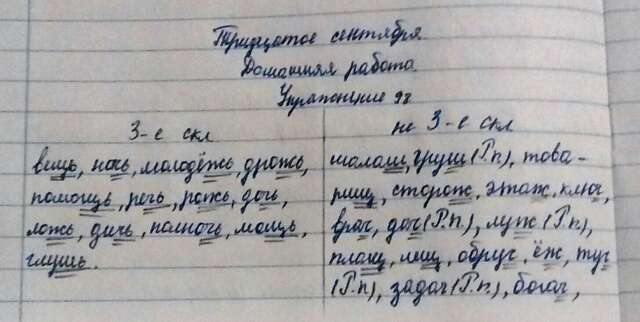 Тридцатое сентября
Домашняя работа.
Упражнение 98
3-е скл
вещь, ночь, молодёжь, дрожь,
помощь, речь, рожь, дочь,
ложь, дичь, полночь, мощь,
глушь.
не 3-е скл
шалаш, груш (Р.п), това-
рищ, сторож, этаж, ключ,
врач, дач (Р.п), луж (Р.п),
плащ, лещ, обруч, ёж, туч
(Р.п), задач (Р.п.), богач,